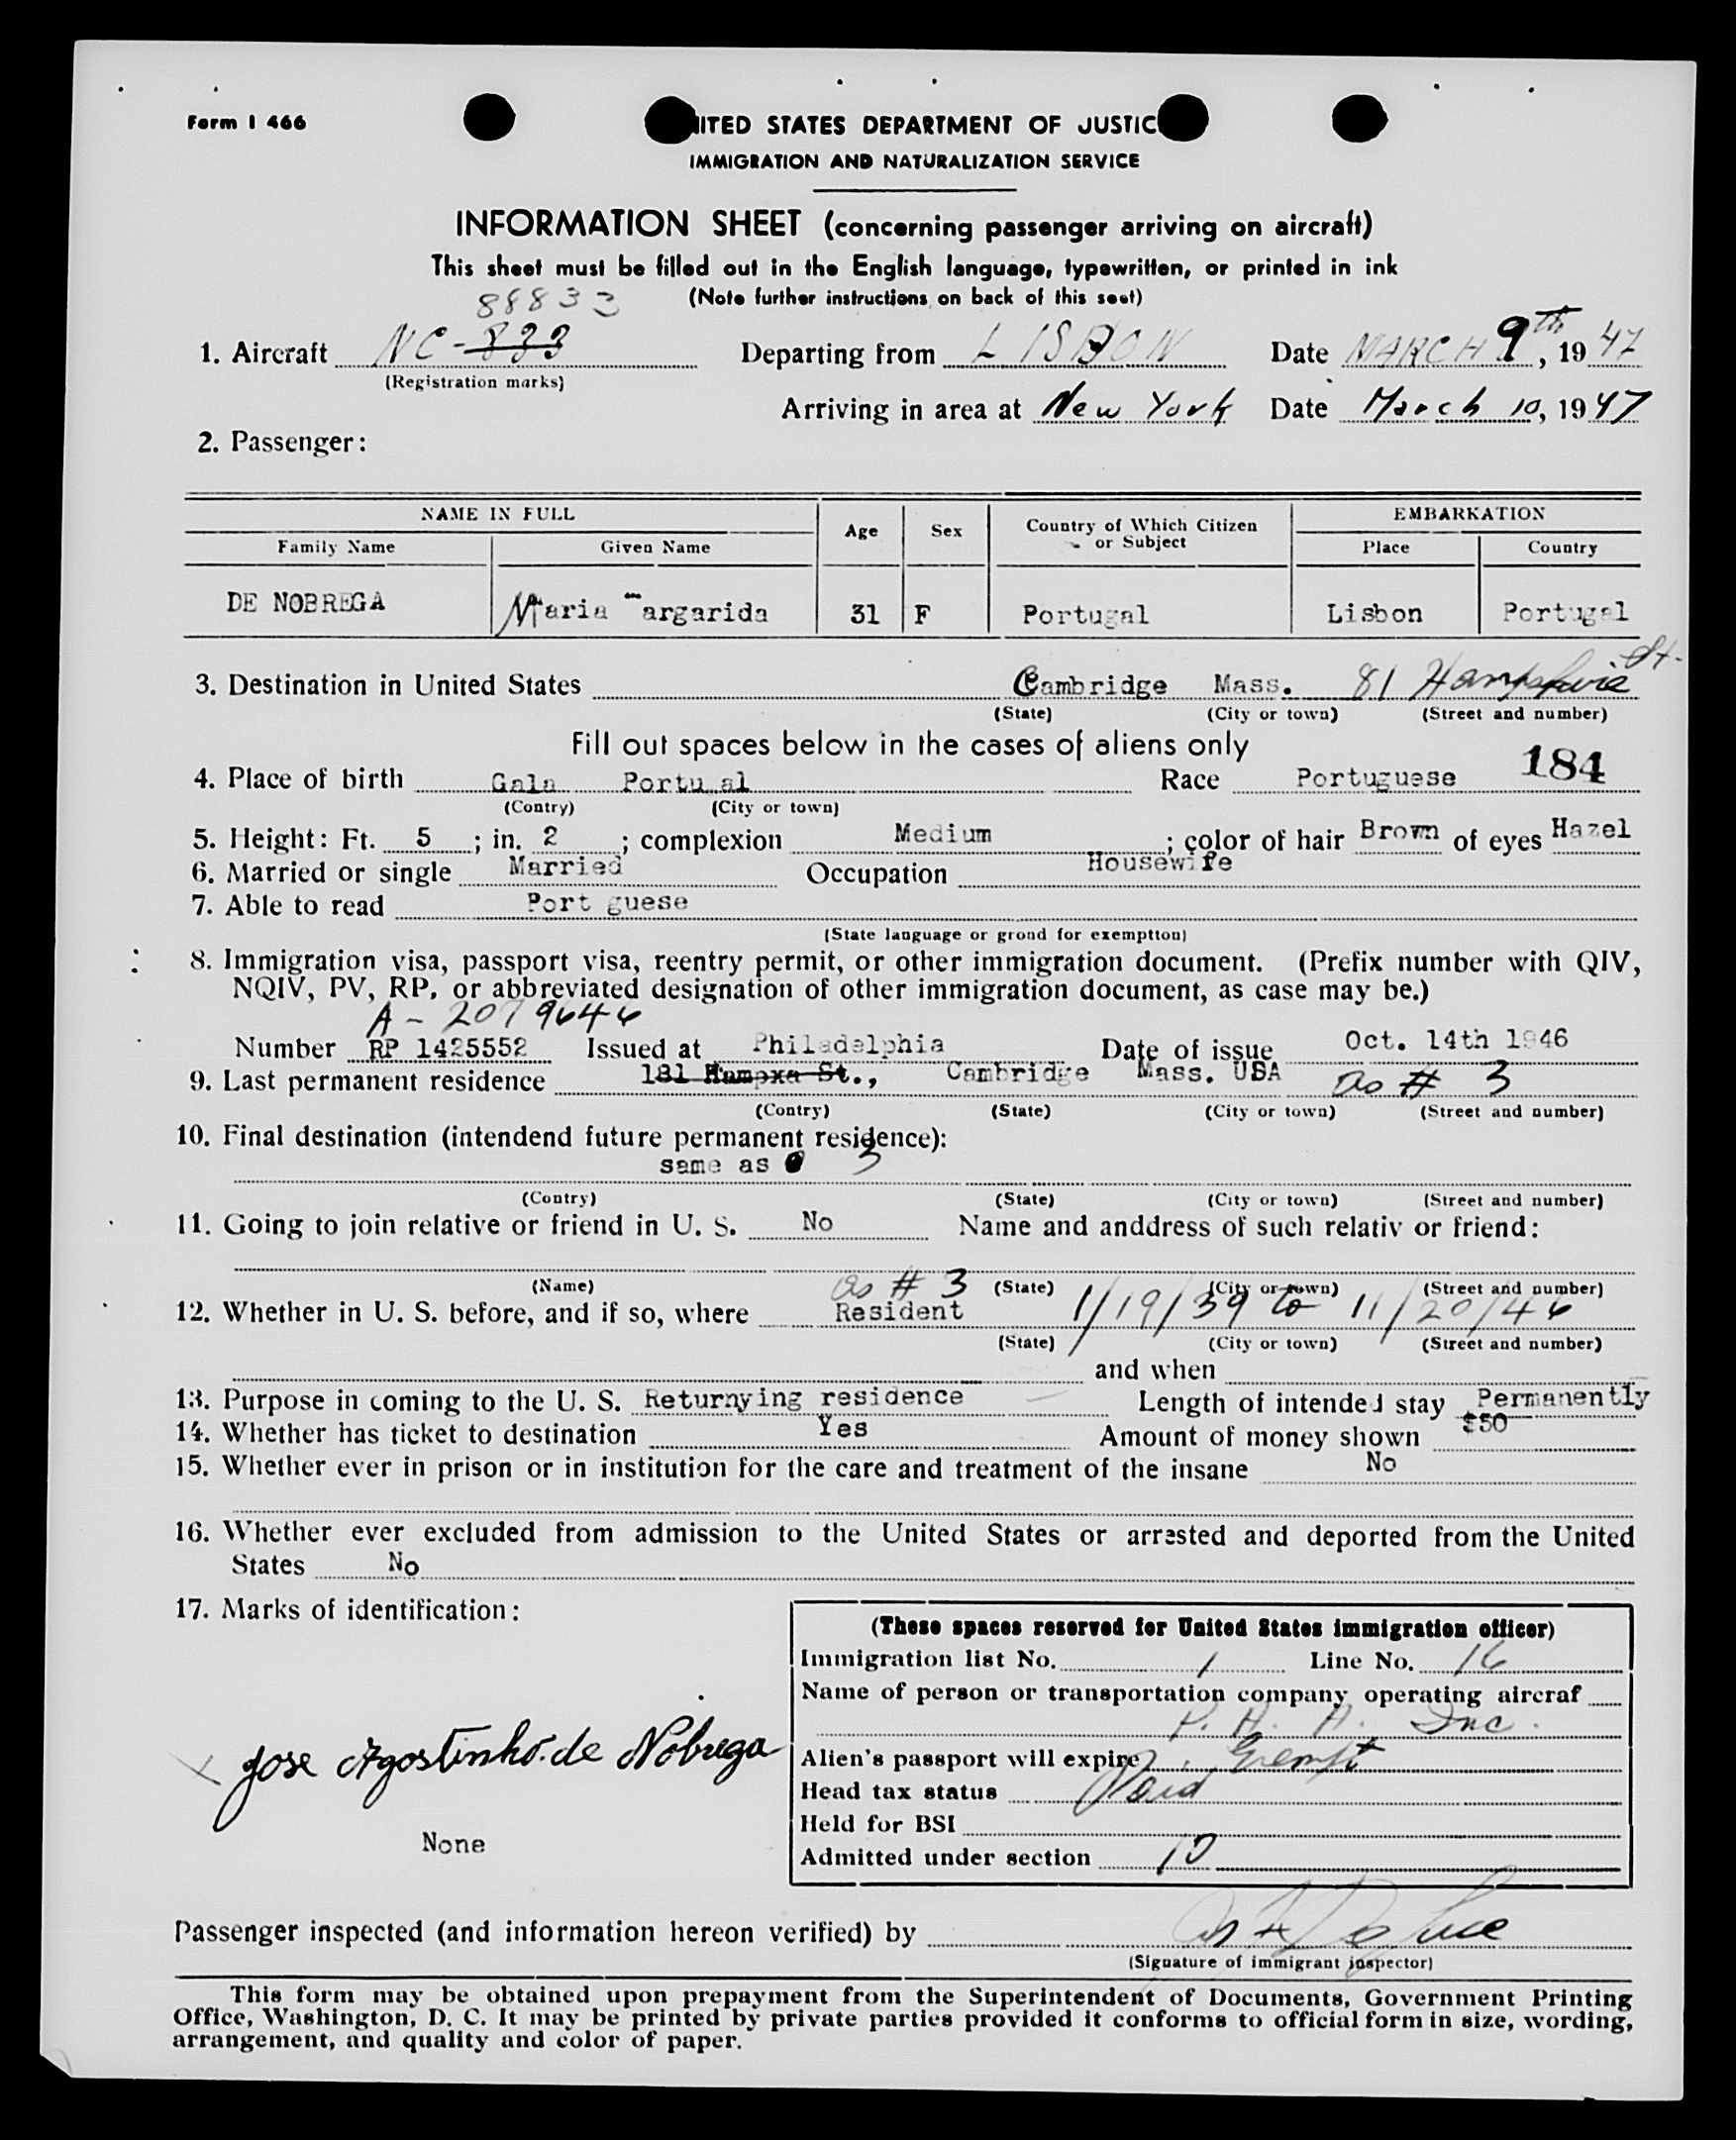 Form I 466
ITED STATES DEPARTMENT OF JUSTIC
IMMIGRATION AND NATURALIZATION SERVICE
INFORMATION SHEET (concerning passenger arriving on aircraft)
This sheet must be filled out in the English language, typewritten, or printed in ink
(Note further instructions on back of this seet)
88833
1. Aircraft NC-833 Departing from LISBON Date MARCH 9th, 1947
(Registration marks)
Arriving in area at New York Date March 10, 1947
2. Passenger:
NAME IN FULL Age Sex Country of Which Citizen or Subject EMBARKATION
Family Name Given Name Place Country
DE NOBREGA Maria Margarida 31 F Portugal Lisbon Portugal
3. Destination in United States Cambridge Mass. 81 Hampshire St.
(State) (City or town) (Street and number)
Fill out spaces below in the cases of aliens only
4. Place of birth Gala Portu al Race Portuguese 184
(Contry) (City or town)
5. Height: Ft. 5 ; in. 2 ; complexion Medium ; color of hair Brown of eyes Hazel
6. Married or single Married Occupation Housewife
7. Able to read Port guese
(State language or grond for exemptton)
8. Immigration visa, passport visa, reentry permit, or other immigration document. (Prefix number with QIV,
NQIV, PV, RP, or abbreviated designation of other immigration document, as case may be.)
A-2079646
Number RP 1425552 Issued at Philadelphia Date of issue Oct. 14th 1946
9. Last permanent residence 181 Hampxa St., Cambridge Mass. USA as # 3
(Contry) (State) (City or town) (Street and number)
10. Final destination (intendend future permanent residence):
same as 3
(Contry) (State) (City or town) (Street and number)
11. Going to join relative or friend in U. S. No Name and anddress of such relativ or friend:
(Name) as # 3 (State) (City or town) (Street and number)
12. Whether in U. S. before, and if so, where Resident 1/19/39 to 11/20/46
(State) (City or town) (Street and number)
and when
13. Purpose in coming to the U. S. Returnying residence Length of intended stay Permanently
14. Whether has ticket to destination Yes Amount of money shown $50
15. Whether ever in prison or in institution for the care and treatment of the insane No
16. Whether ever excluded from admission to the United States or arrested and deported from the United
States No
17. Marks of identification:
(These spaces reserved for United States immigration officer)
Immigration list No. 1 Line No. 16
Name of person or transportation company operating aircraf
P. A. A. Inc.
x Jose Agostinho de Nobrega
Alien's passport will expire Exempt
Head tax status Paid
None
Held for BSI
Admitted under section 10
Passenger inspected (and information hereon verified) by
(Signature of immigrant inspector)
This form may be obtained upon prepayment from the Superintendent of Documents, Government Printing
Office, Washington, D. C. It may be printed by private parties provided it conforms to official form in size, wording,
arrangement, and quality and color of paper.